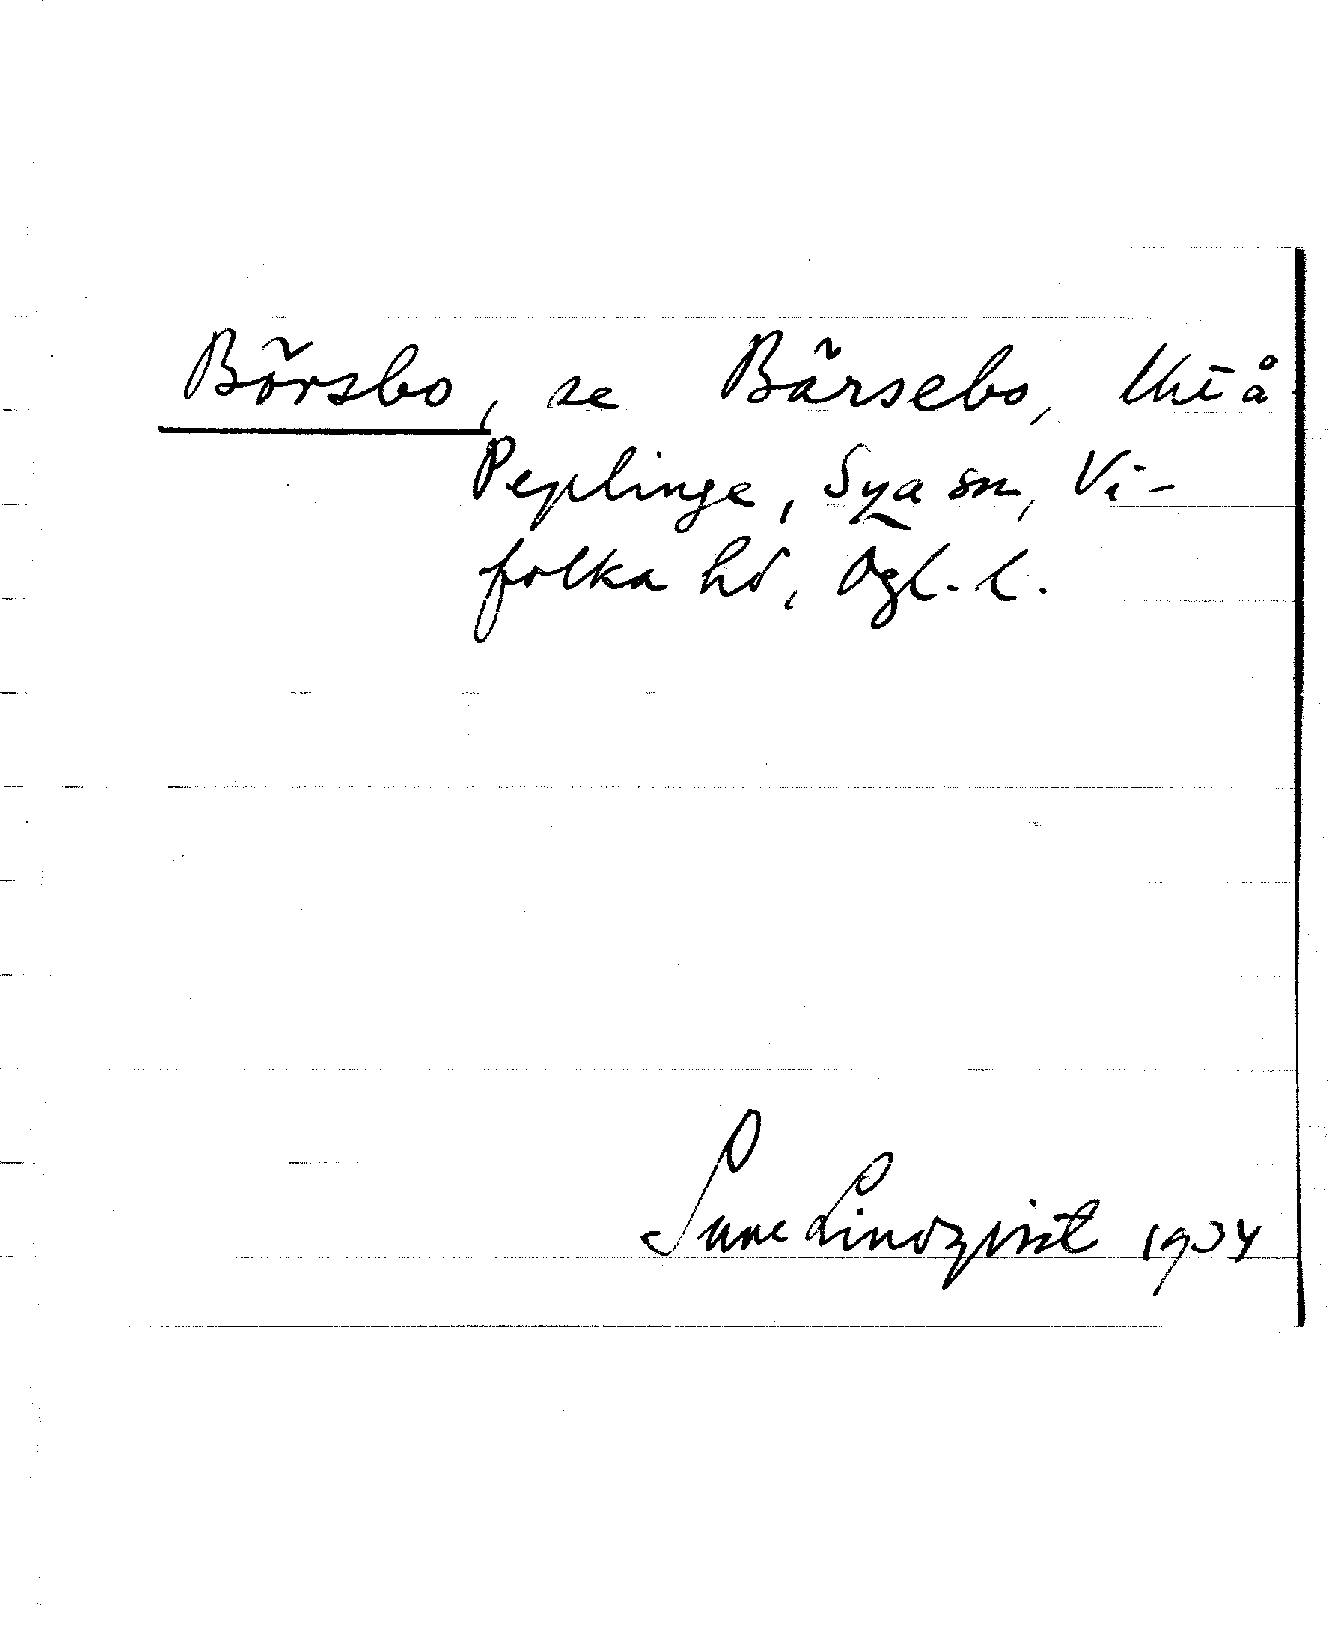 Börsbo, se Bärsebo, tht å
Peplinge, Sya sn, Vi-
folka hd, Ögl. l.
Sune Lindqvist 1934